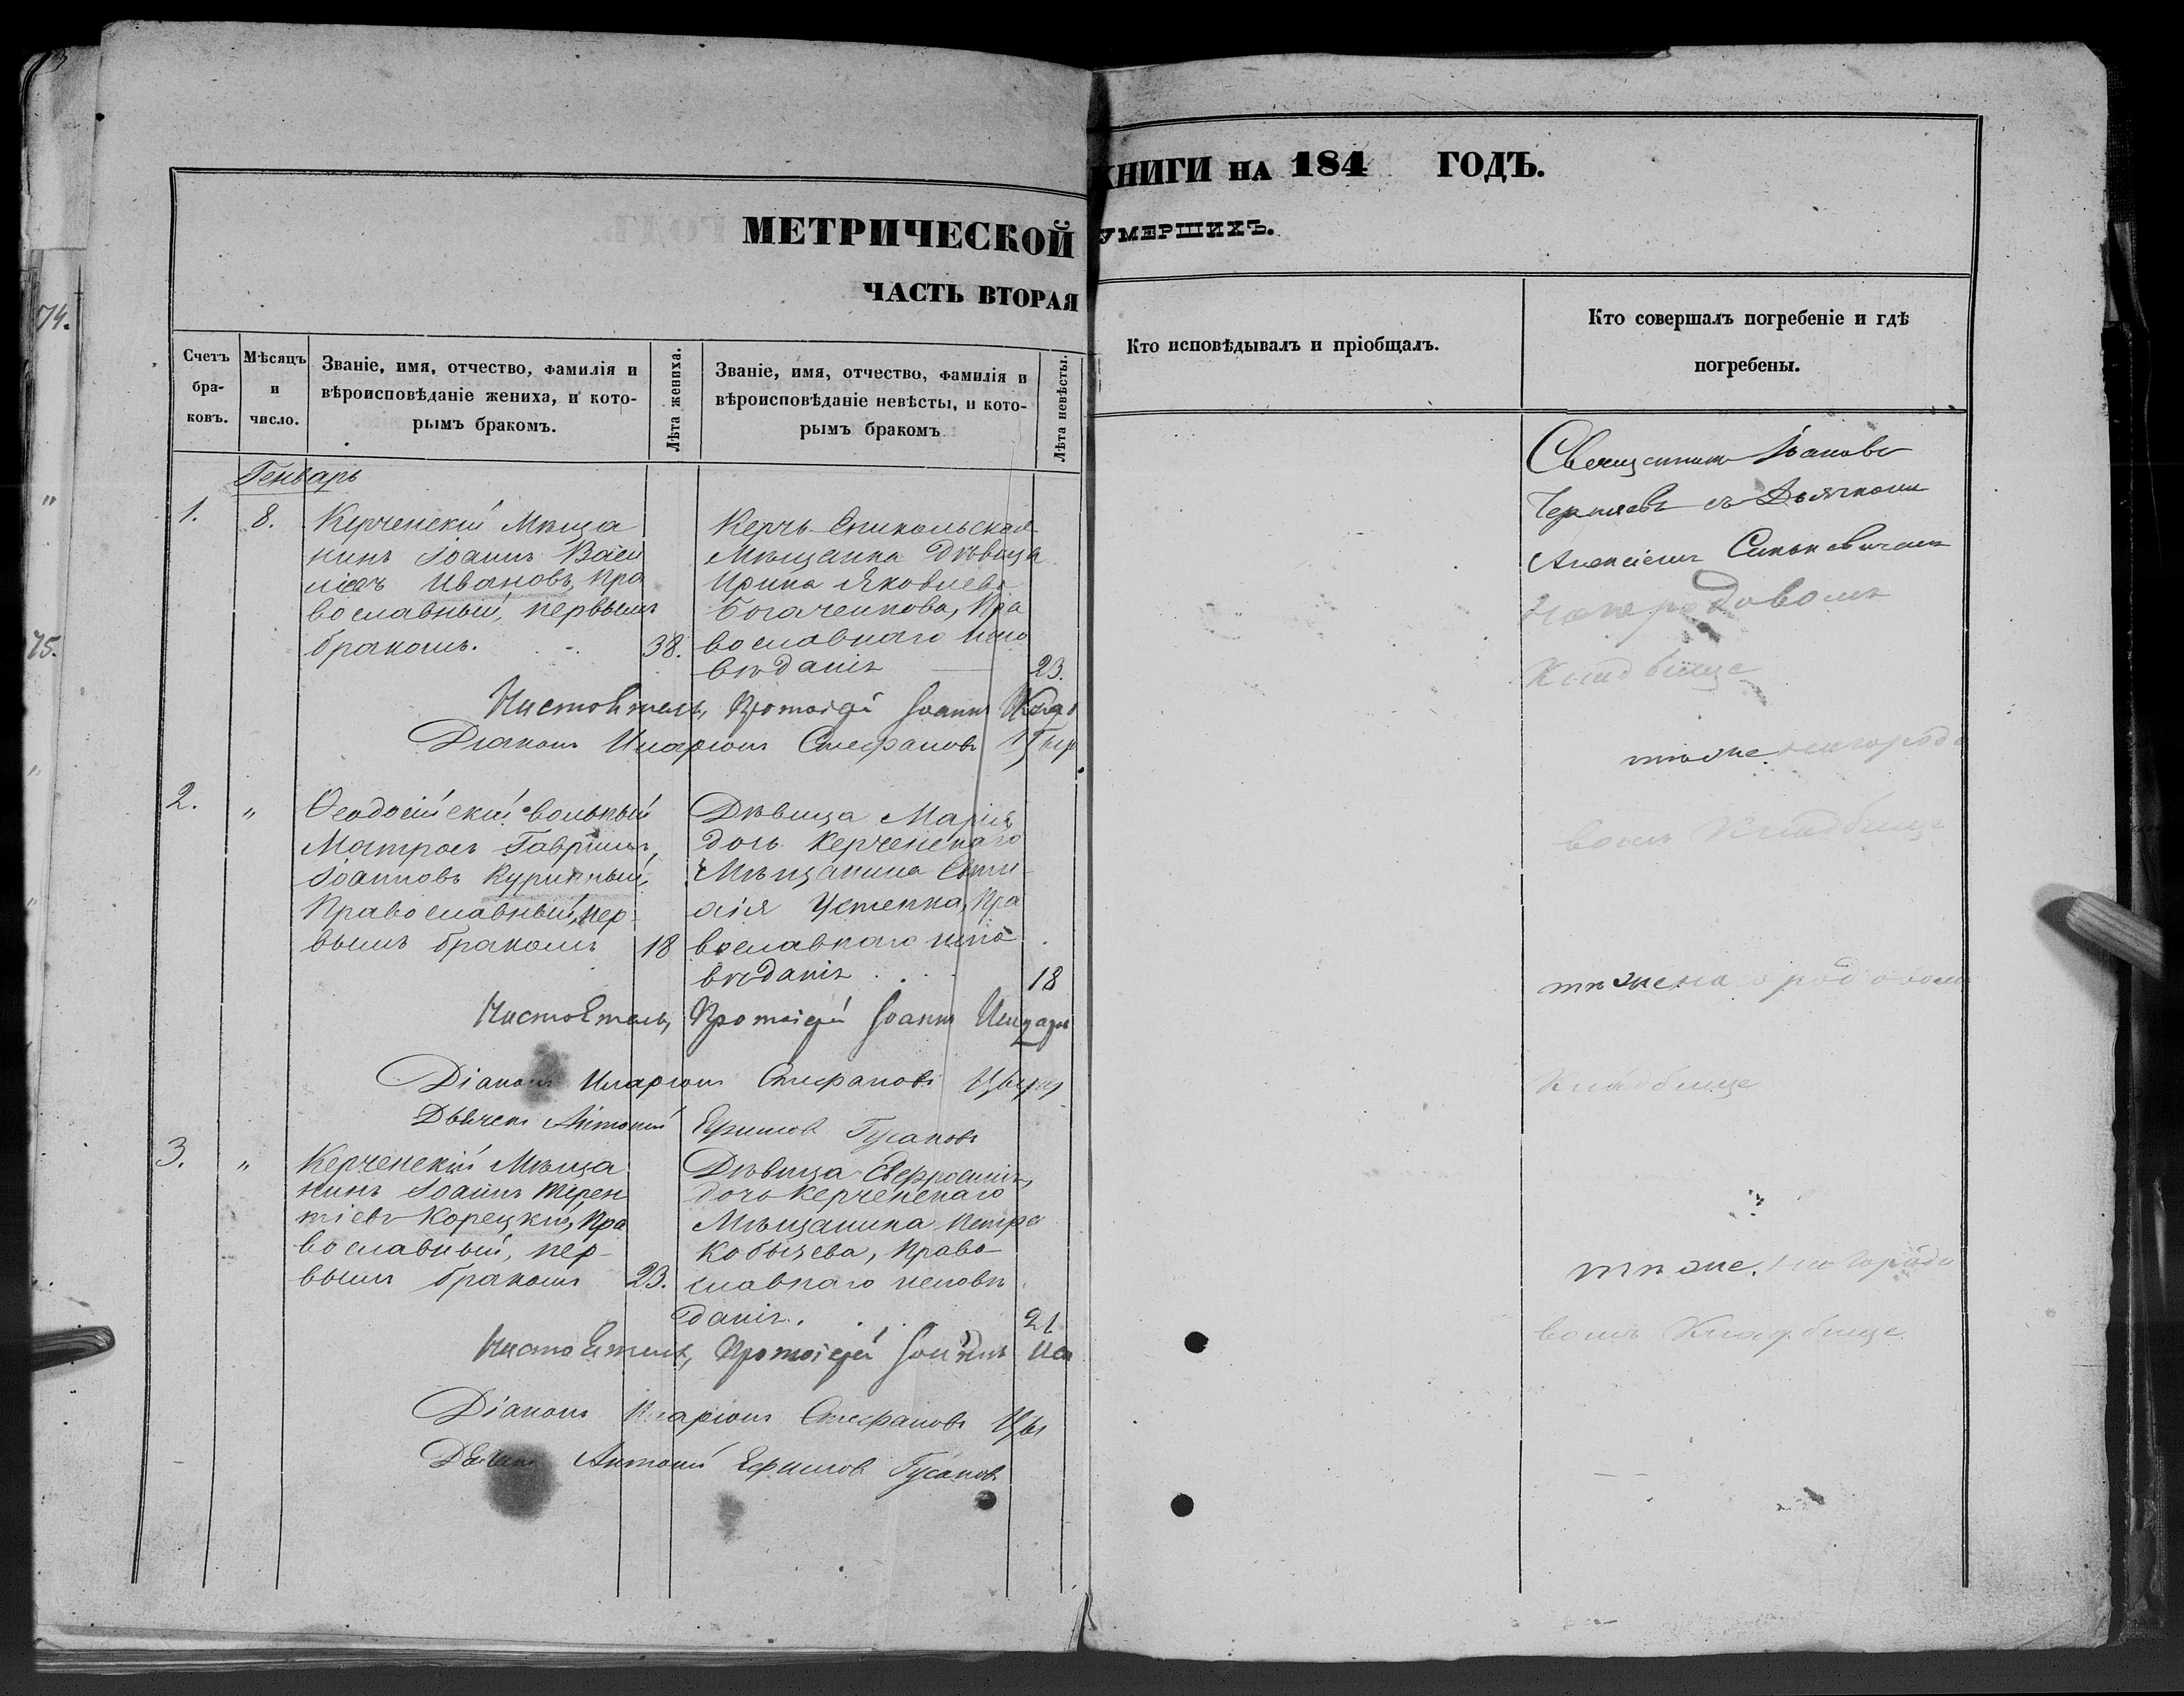 74.
"
75.
МЕТРИЧЕСКОЙ
ЧАСТЬ ВТОРАЯ
Счетъ бра-ковъ.
Мѣсяцъ и число.
Званіе, имя, отчество, фамилія и
вѣроисповѣданіе жениха, и кото-
рымъ бракомъ.
Лѣта жениха.
Званіе, имя, отчество, фамилія и
вѣроисповѣданіе невѣсты, и кото-
рымъ бракомъ
Лѣта невѣсты.
Генварь
1.
8.
Керченскій Мѣща
нинъ Іоаннъ Васи
ліевъ Ивановъ, Пра
вославный, первымъ
бракомъ.
38.
Керчь-Еникольская
Мѣщанка Дѣвица
Ирина Яковлева
Богаченкова, Пра
вославнаго испо
вѣданія
23.
Протоіерей Іоаннъ
Діаконъ Иларіонъ Стефановъ
2.
"
Ѳеодосійскій вольный
Матросъ Гавріилъ
Іоанновъ Куринный,
Православный, пер-
вымъ бракомъ
18
Дѣвица Марія
дочь Керченскаго
Мѣщанина
Устенка, Пра
вославнаго испо
вѣданія
18
Протоіерей Іоаннъ
Діаконъ Иларіонъ Стефановъ
Дьячекъ Антоній Ефимовъ Гусаковъ
3.
"
Керченскій Мѣща
нинъ Іоаннъ Терен
тіевъ Корецкій, Пра
вославный, пер-
вымъ бракомъ
23.
Дѣвица Евфросинія,
дочь Керченскаго
Мѣщанина Петра
Кобычева, Право-
славнаго исповѣ
данія.
21
Протоіерей Іоаннъ
Діаконъ Иларіонъ Стефановъ
Антоній Ефимовъ Гусаковъ
КНИГИ НА 184 ГОДЪ.
УМЕРШИХЪ.
Кто исповѣдывалъ и пріобщалъ.
Кто совершалъ погребеніе и гдѣ
погребены.
Священникъ Іаковъ
Черняевъ съ Дьячкомъ
Алексіемъ Синькевичемъ
на городовомъ
Кладбище
тѣ же. на городо
вомъ Кладбище
тѣ же на городовомъ
Кладбище
тѣ же. на городо
вомъ Кладбище.